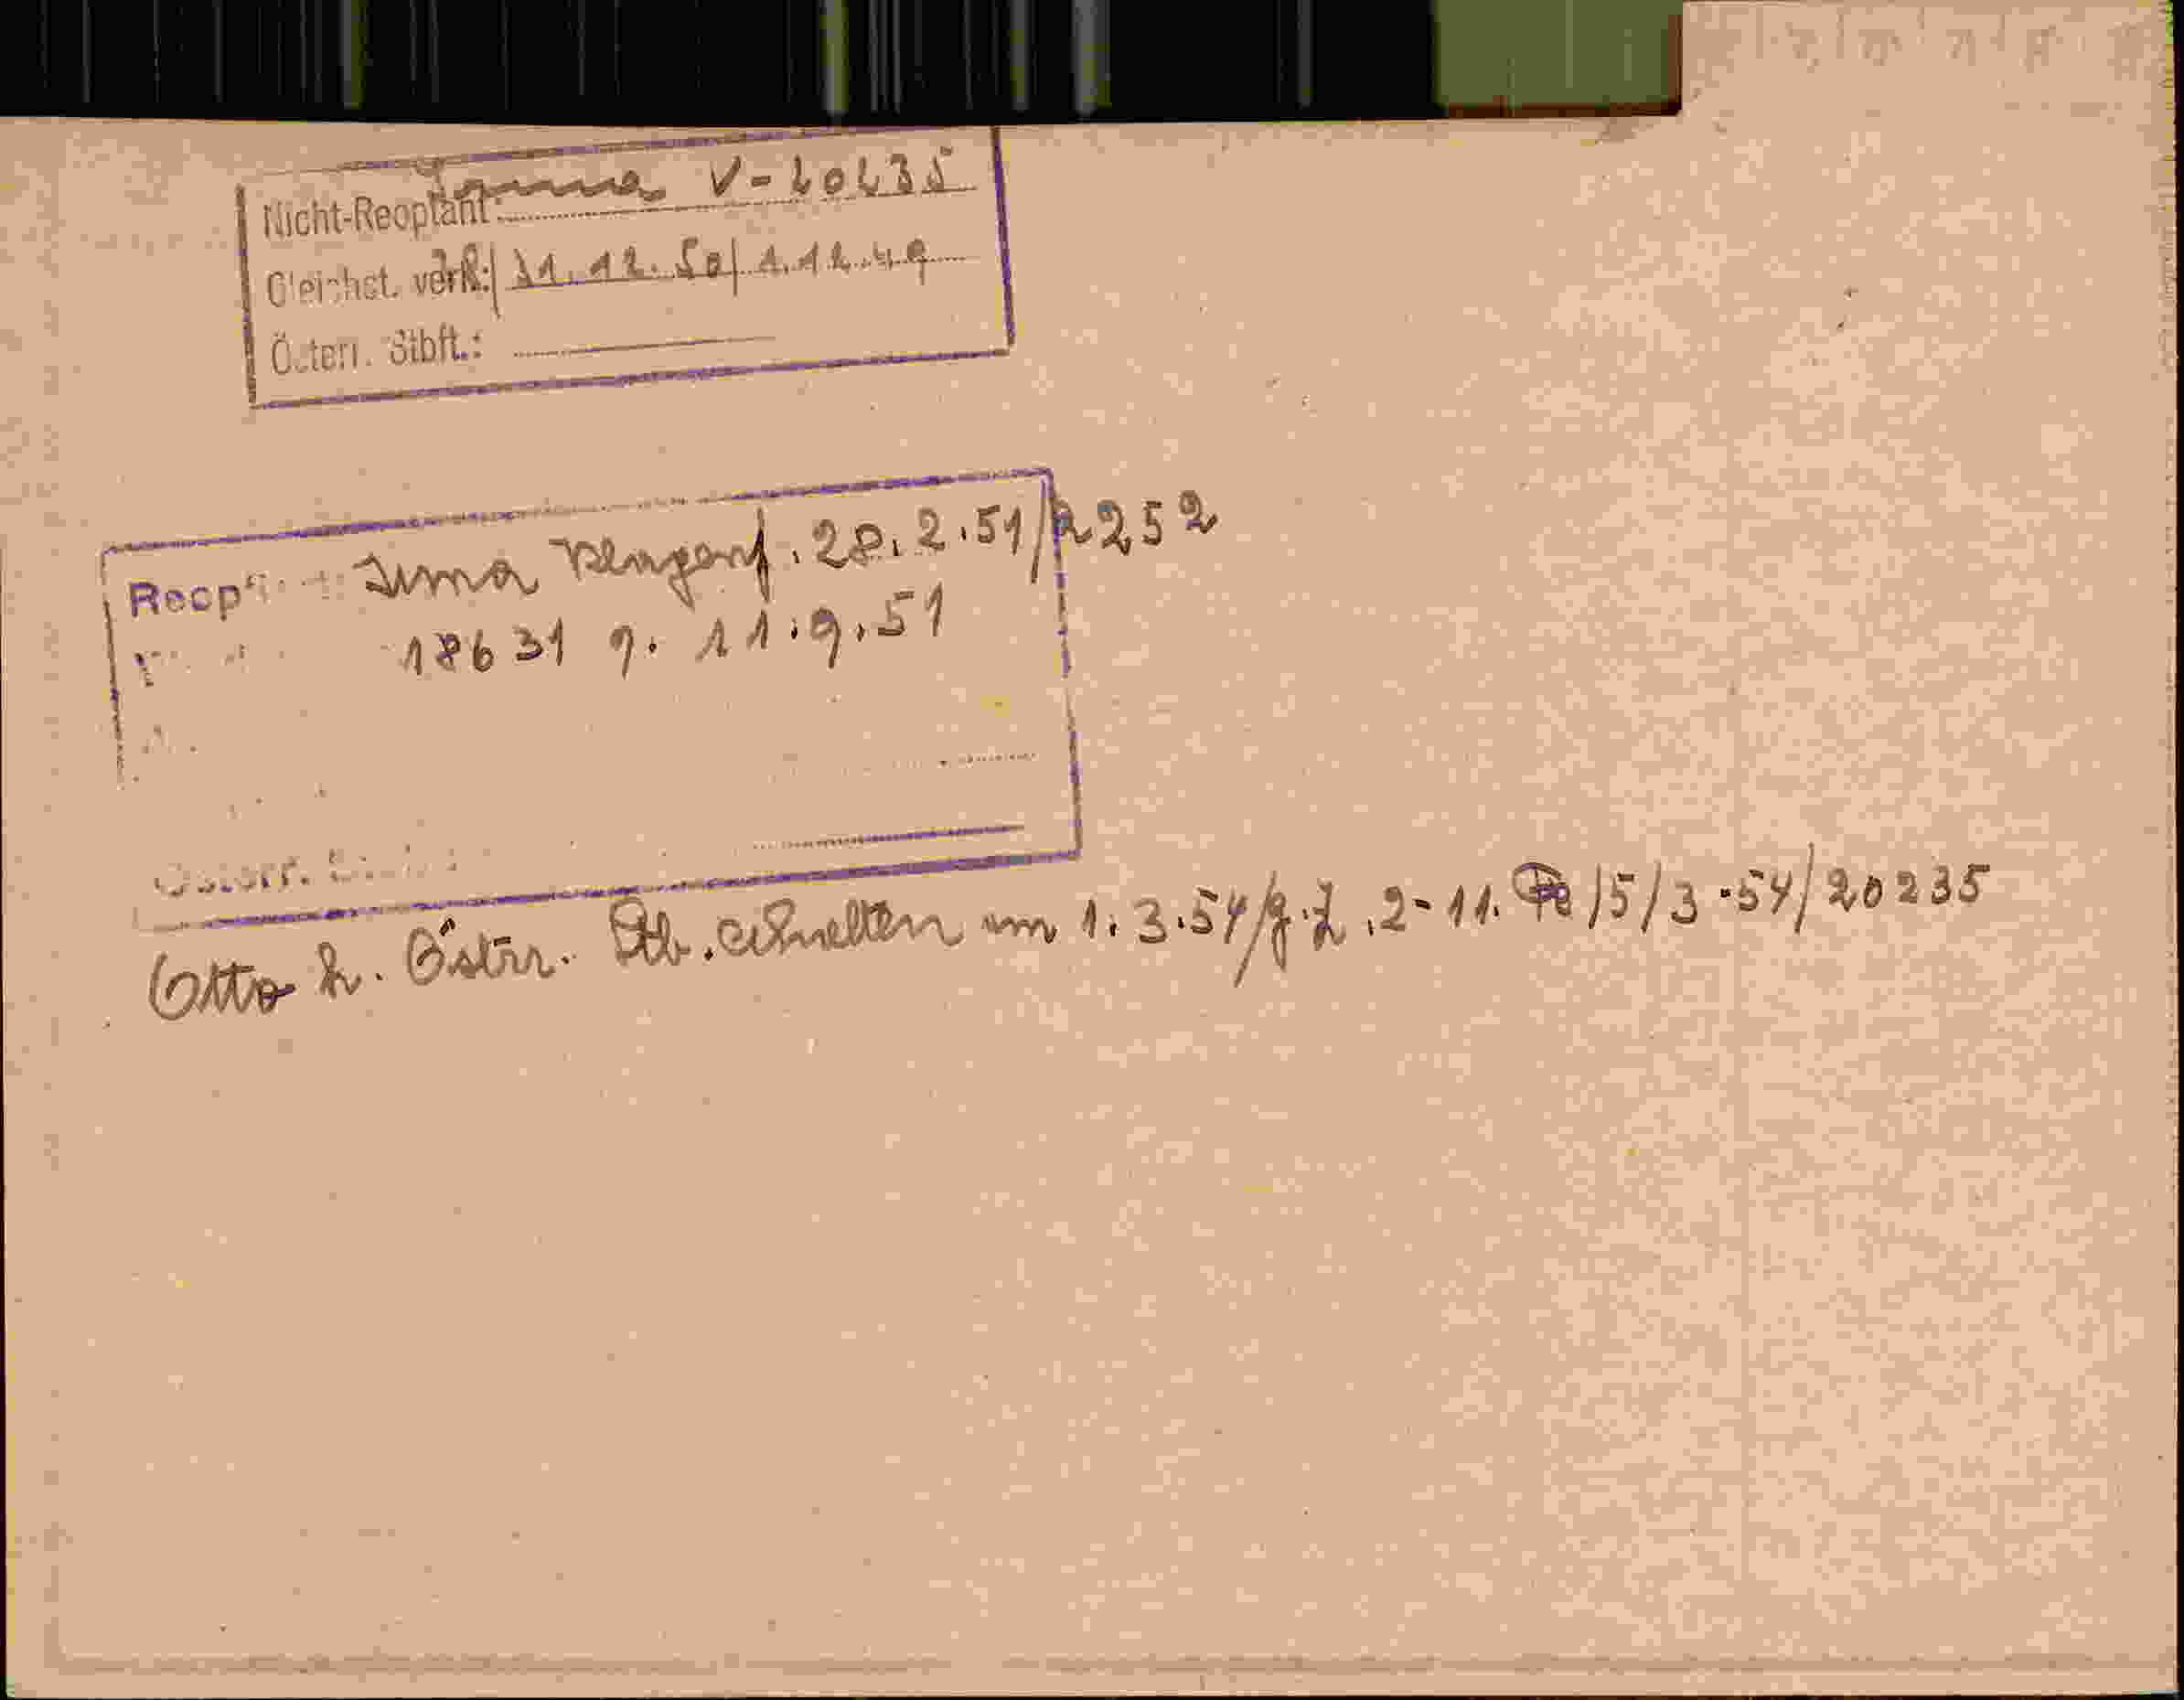 Nicht-Reoptant: V-20235
Gleichst. verl.: 31.12.50/1.12.49
Österr. Stbft.:
Irma Klagenf. 28.2.51/2252
18631 9. 11.9.51
Österr.
Otto h. Östrr. Stb. erhalten am 1.3.54/g.Z.2-11. /5/3.54/20235